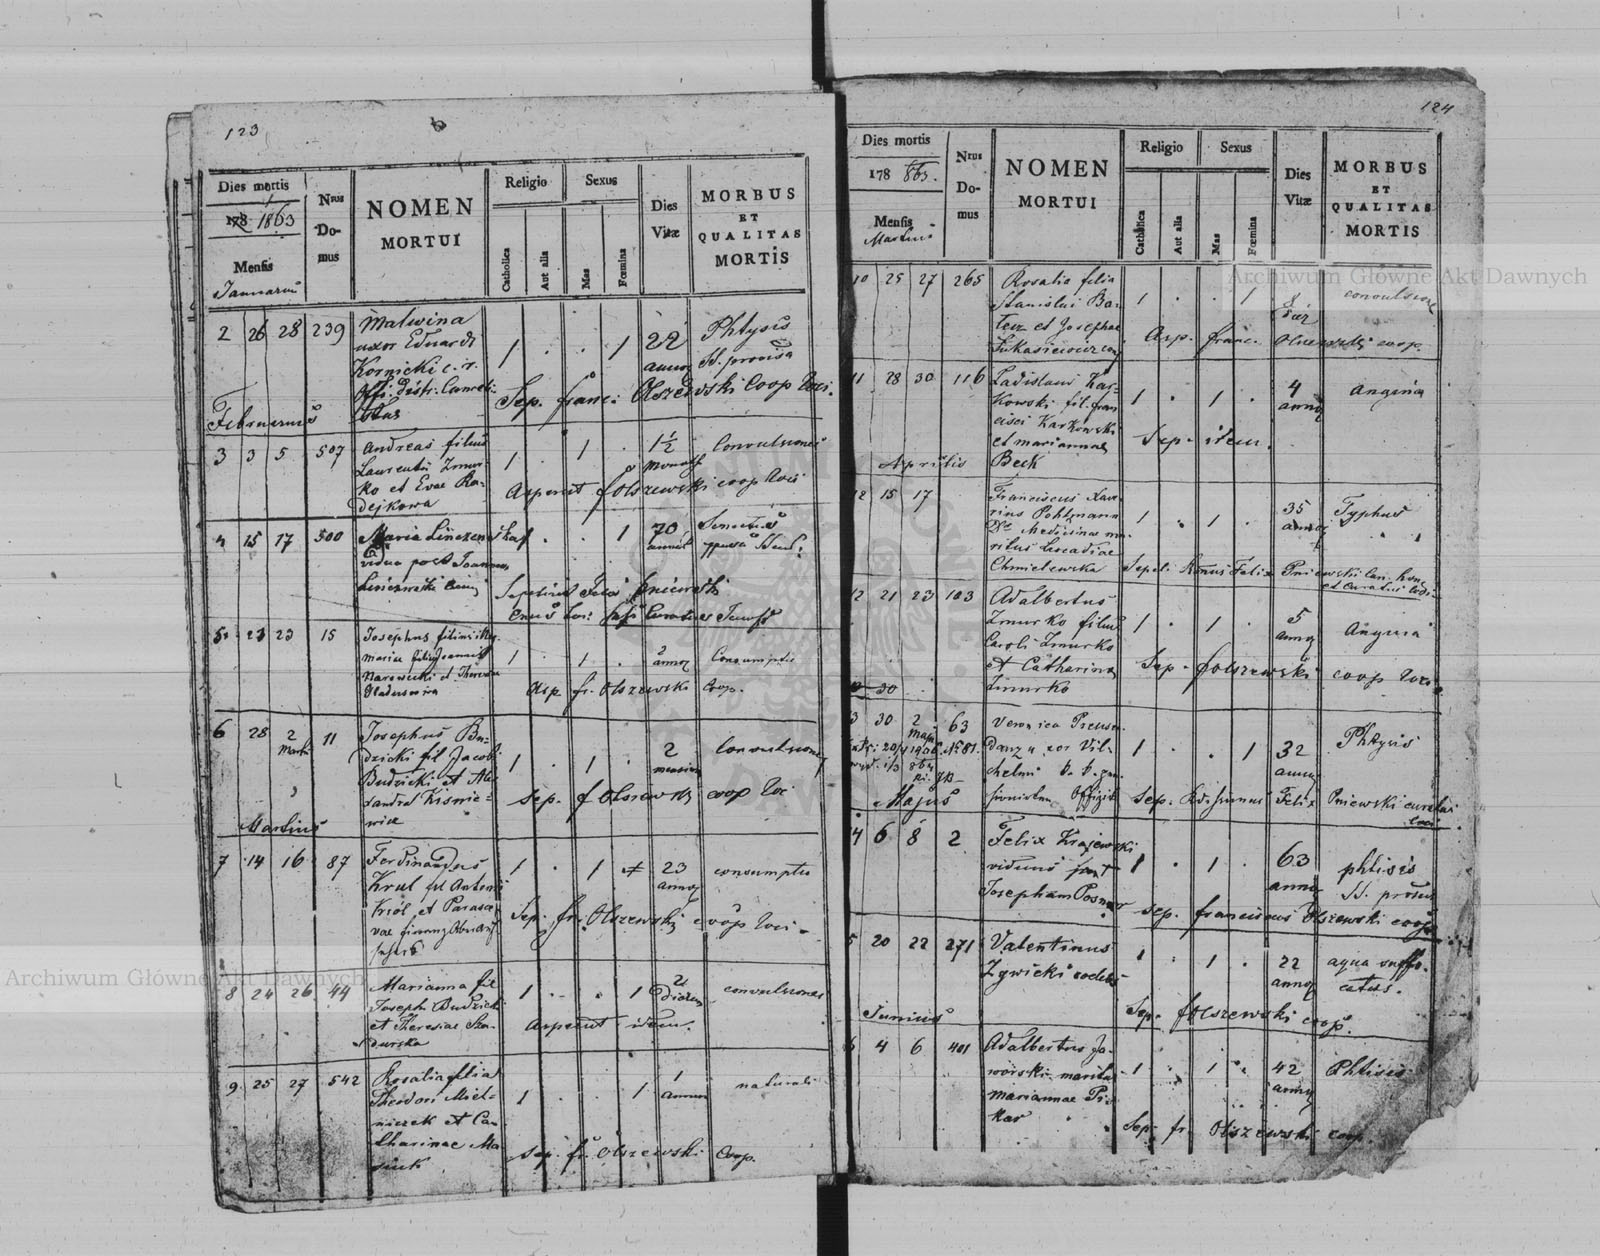 123
Dies mortis
178 1863
Mensis
Januarius
Nrus
Do-
mus
NOMEN
MORTUI
Religio
Catholica
Aut alia
Sexus
Mas
Fœmina
Dies
Vitæ
MORBUS
ET
QUALITAS
MORTIS
2 26 28 239
Malwina
uxor Eduardi
Kornicki c. r.
1 . . 1
22
annor
Phtysis
SS. provisa
Sep. franc: Olszewski Coop loci.
Februarius
3 3 5 507
Andreas filius
Laurentii Zmur-
ko et Evae Ra-
dejkowa
1 . 1 .
1½
Convulsiones
Asperut f Olszewski coop loci
4 15 17 500
Maria
vidua post Joannem
. . 1
70
Senectus
5 23 23 15
Josephus
1 . 1 .
2
annor
Consumptio
Asp fr. Olszewski Coop.
6 28 2 11
Marti
Josephus Bu-
dzicki fil Jacobi
Budzicki et Ale-
xandra Kisnie-
wicz
1 . 1 .
2
mensium
Convulsiones
Sep. f Olszewski coop loci
Martius
7 14 16 87
Ferdinandus
Krul fil Antonii
Król et Parasce-
vae
1 . 1
23
annor
consumptio
Sep. fr. Olszewski coop loci.
8 24 26 44
Marianna fil
Joseph Budzicki
et Theresiae Sza-
durska
1 . . 1
2
dierum
convulsiones
asperut idem.
9 25 27 542
Rosalia filia
Theodori Miel-
niczek et Ca-
tharinae Ma-
siuk
1 . . 1
1
annum
naturalis
sep. fr Olszewski Coop.
124
Dies mortis
178 863.
Mensis
Martius
Nrus
Do-
mus
NOMEN
MORTUI
Religio
Catholica
Aut alia
Sexus
Mas
Fœmina
Dies
Vitæ
MORBUS
ET
QUALITAS
MORTIS
10 25 27 265
Rosalia filia
Stanislai Ba-
et Josephae
Łukasiewiczowa
1 . . 1
8
dier
convulsiones
Asp. franc. Olszewski coop.
11 28 30 116
Ladislaus Kar-
kowski fil. fran-
cisci Karkowski
et mariannae
Beck
1 . 1 .
4
annor
angina
Sep. idem.
Aprilis
12 15 17
Franciscus Xave-
rius Pohlmann
Dr Medicinae ma-
ritus Leocadiae
Chmielewska
1 . 1 .
35
annor
Typhus
Sepel. Rdnus Felix Pniewski Can. hon.
et Curatus loci.
12 21 23 103
Adalbertus
Zmurko filius
Caroli Zmurko
et Catharina
Zmurko
1 . 1 .
5
annor
Angina
Sep. f Olszewski coop loci
30
3 30 2 63
Maji
Veronica
1 . . 1
32
annor
Phtysis
Sep. Felix Pniewski curatus
loci.
Majus
4 6 8 2
Felix Krajewski
viduus post
Josepham Posner
1 . 1 .
63
annor
phtisis
SS. provis
sep. franciscus Olszewski coop.
5 20 22 271
Valentinus
Zywicki
1 . 1 .
22
annor
aqua suffo-
catus.
Sep. f Olszewski coop.
Junius
6 4 6 401
Adalbertus Ja-
worski maritus
mariannae Pie-
kar
1 . 1 .
42
annor
Phtisis
Sep. fr. Olszewski coop.
Archiwum Główne Akt Dawnych
Archiwum Główne Akt Dawnych